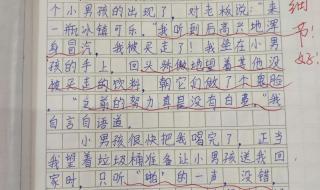 个小男孩的出现了，对老板说：“来
一瓶冰镇可乐。”我听到后高兴地浑
身冒汽，我被买走了！我坐在小男
孩的手上，回头骄傲地望着其他没
被买走的饮料，朝它们做了个鬼脸
“之前的努力真是没有白费。”我
自言自语道。
小男孩很快把我喝完了，正当
我望着垃圾桶准备让小男孩送我回
家时，只听“啪”的一声，没错，
细
节！
好！